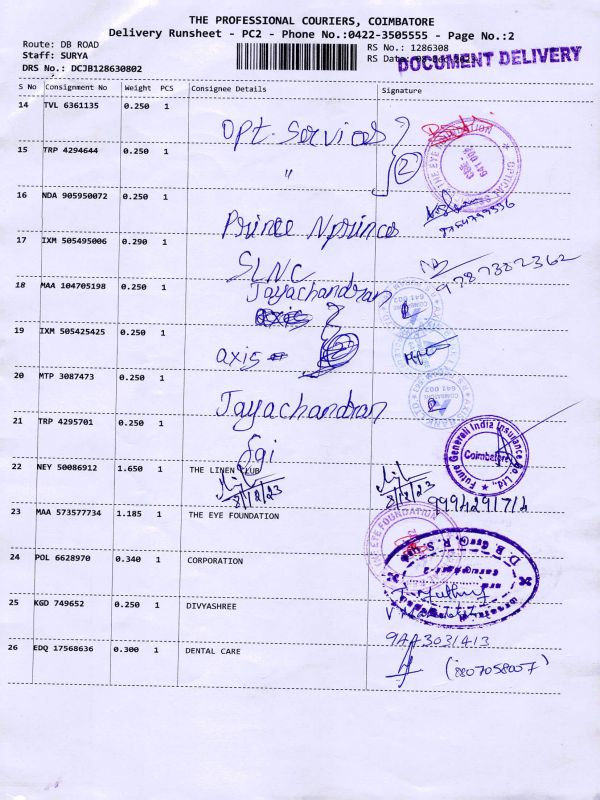 THE PROFESSIONAL COURIERS, COIMBATORE
Delivery Runsheet - PC2 - Phone No.:0422-3505555 - Page No.:2
Route: DB ROAD
RS No.: 1286308
Staff: SURYA
RS Date: 08-Dec-2023
DOCUMENT DELIVERY
DRS No.: DCJB128630802
S No Consignment No Weight PCS Consignee Details Signature
14 TVL 6361135 0.250 1
Opt. Services
15 TRP 4294644 0.250 1
" 2
THE EYE FOUNDATION
OPTICAL
16 NDA 905950072 0.250 1
Prince N prince
17 IXM 505495006 0.290 1
SLNC
9787322362
18 MAA 104705198 0.250 1
Jayachandran
COIMBATORE
641 002
19 IXM 505425425 0.250 1
axis
20 MTP 3087473 0.250 1
Jayachandran
COIMBATORE
641 002
21 TRP 4295701 0.250 1
Future Generali India Insurance Co. Ltd.,
Coimbatore
22 NEY 50086912 1.650 1 THE LINEN CLUB
8/12/23 8/12/23
23 MAA 573577734 1.185 1 THE EYE FOUNDATION
THE EYE FOUNDATION
24 POL 6628970 0.340 1 CORPORATION
25 KGD 749652 0.250 1 DIVYASHREE
26 EDQ 17568636 0.300 1 DENTAL CARE
(8807058007)